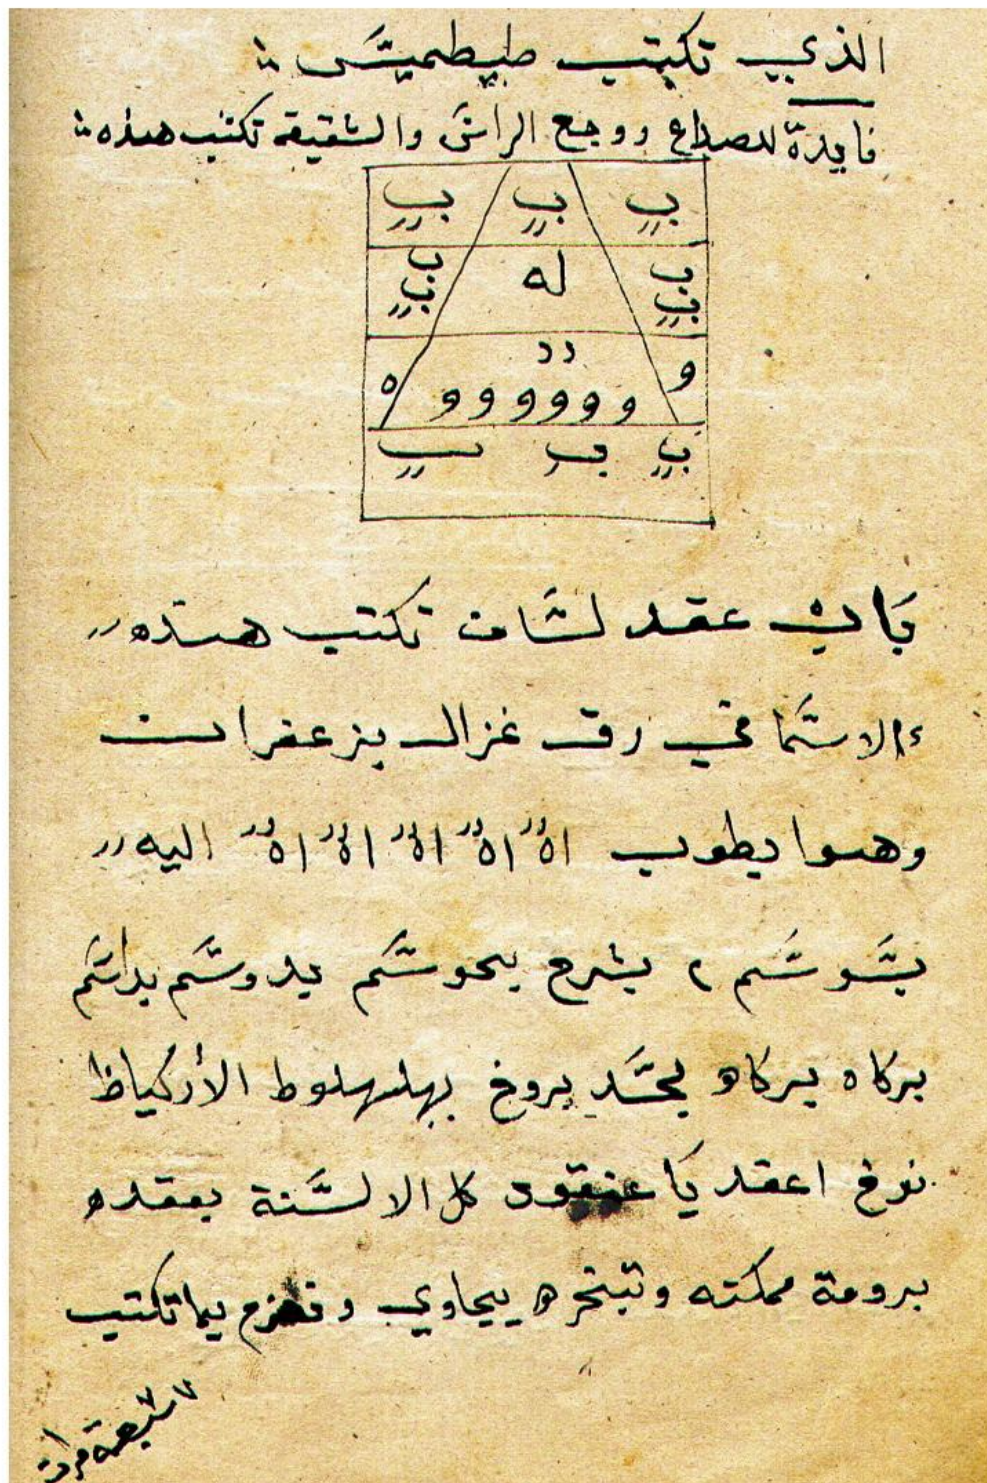 الذي تكتب طيطميش
فايدة للصداع ووجع الراس والشقيقه تكتب هذه
بب بب بب
بب له بب
ه وو و
و و و و و و
ب ب ب
باب عقد لسان تكتب هذه
الاسما في رق غزال بزعفران
وهوا يطوب اه اه اه اه اه اليه
يشوشم ٢ يشرع يحوشم يدوشم بداشم
بركاه يركاه بروخ بهلهلوط
نوخ اعقد يا كل الالسنة بعقده
برومة ممكنه وتبخره بيجاوي بما تكتب
سبعة مرات